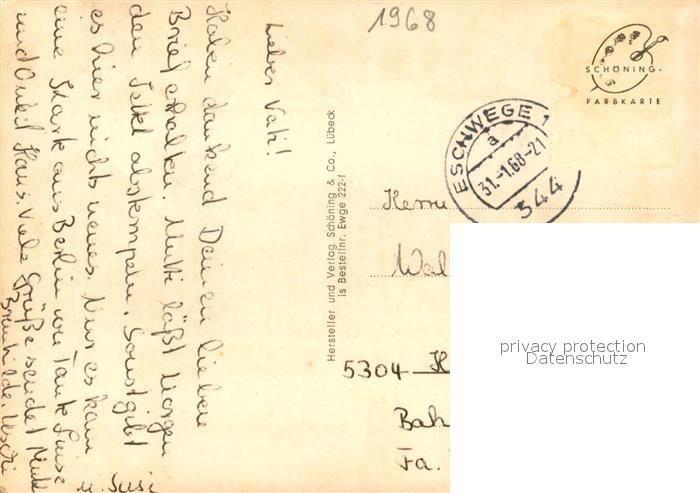 1968
Lieber Vati!
Haben dankend Deinen lieben
Brief erhalten. Mutti läßt morgen
den Zettel abstempeln. Sonst gibt
es hier nichts neues. Nur es kam
eine Karte aus Berlin von Tante Luise
und Onkel Hans. Viele Grüße sendet Mutti
Brunhilde, Uschi
u. Susi
Hersteller und Verlag Schöning & Co., Lübeck
is Bestellnr. Ewge 222-f
SCHÖNING
FARBKARTE
ESCHWEGE 1
a
31.-1.68-21
344
Herrn
Wal
5304 H
Bah
Fa.
privacy protection
Datenschutz